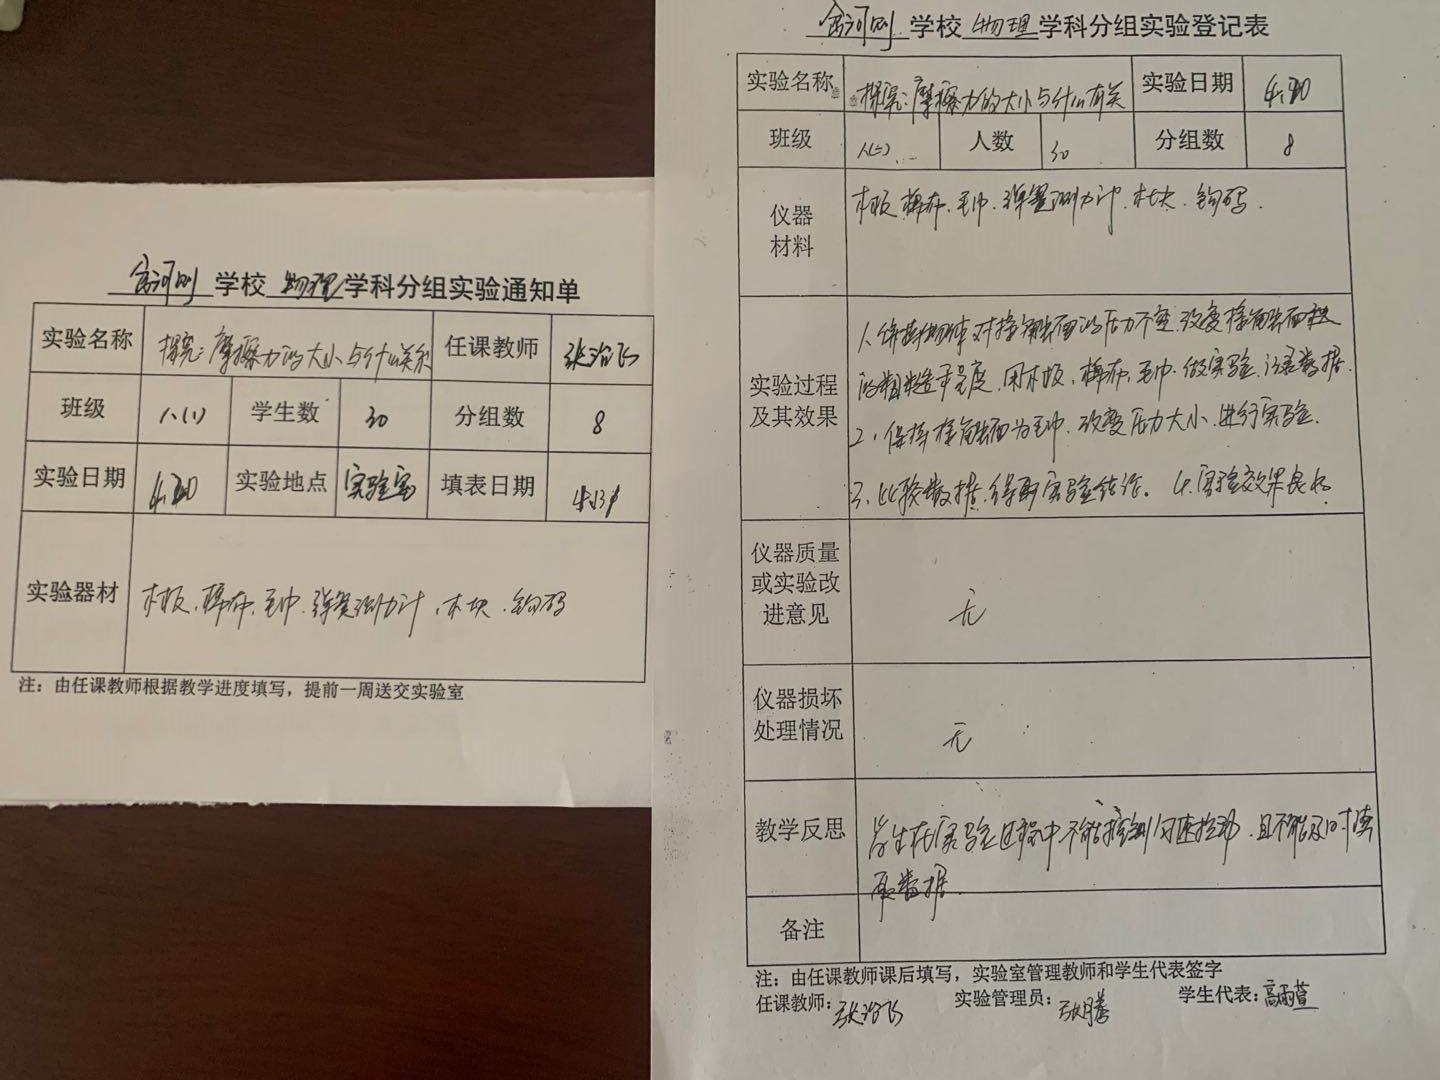 学校 物理 学科分组实验通知单
实验名称 探究:摩擦力的大小与什么关系 任课教师
班级 八(1) 学生数 30 分组数 8
实验日期 4.20 实验地点 实验室 填表日期 4.13
实验器材 木板、棉布、毛巾、弹簧测力计、木块、钩码
注:由任课教师根据教学进度填写,提前一周送交实验室
学校 物理 学科分组实验登记表
实验名称 探究:摩擦力的大小与什么有关 实验日期 4.20
班级 八(二) 人数 30 分组数 8
仪器
材料
木板、棉布、毛巾、弹簧测力计、木块、钩码.
实验过程
及其效果
1、保持物体对接触面的压力不变,改变接触面
的粗糙程度,用木板、棉布、毛巾、做实验,记录数据.
2、保持接触面为毛巾,改变压力大小,进行实验.
3、比较数据,得到实验结论。 4.实验效果良好
仪器质量
或实验改
进意见
无
仪器损坏
处理情况
无
教学反思
学生在实验过程中不能控制匀速拉动,且不能及时读
取数据.
备注
注:由任课教师课后填写,实验室管理教师和学生代表签字
任课教师: 实验管理员:张腾 学生代表:高雨萱